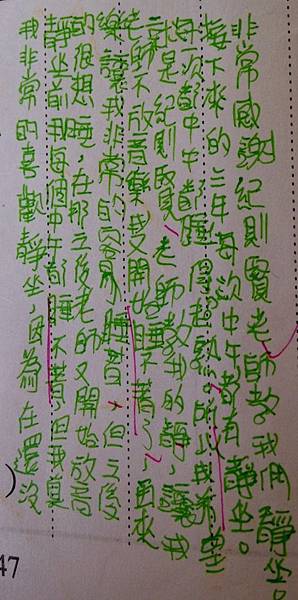 我非常的喜歡靜坐,因為在還沒
靜坐前,我每個中午都睡不著,但我真
的很想睡,在那之後老師又開始放音
樂讓我非常的容易睡著,但之後
老師不放音樂我又開始睡不著了,再來
就是紀則賢老師教我的靜,讓我
每次都中午都睡得老熟。所以我希望
接下來的三年每次中午都有靜坐。
非常感謝紀則賢老師教我們靜坐。
47